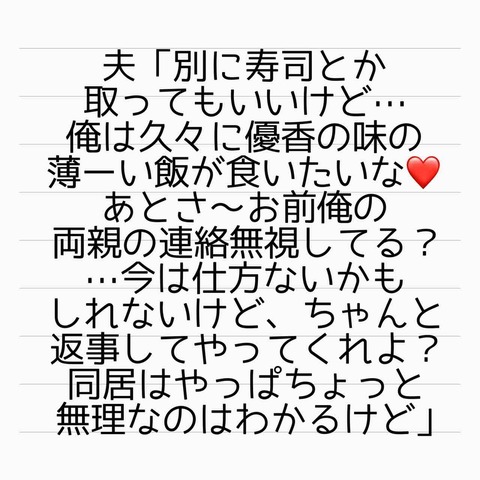 夫「別に寿司とか
取ってもいいけど…
俺は久々に優香の味の
薄ーい飯が食いたいな❤️
あとさ〜お前俺の
両親の連絡無視してる？
…今は仕方ないかも
しれないけど、ちゃんと
返事してやってくれよ？
同居はやっぱちょっと
無理なのはわかるけど」